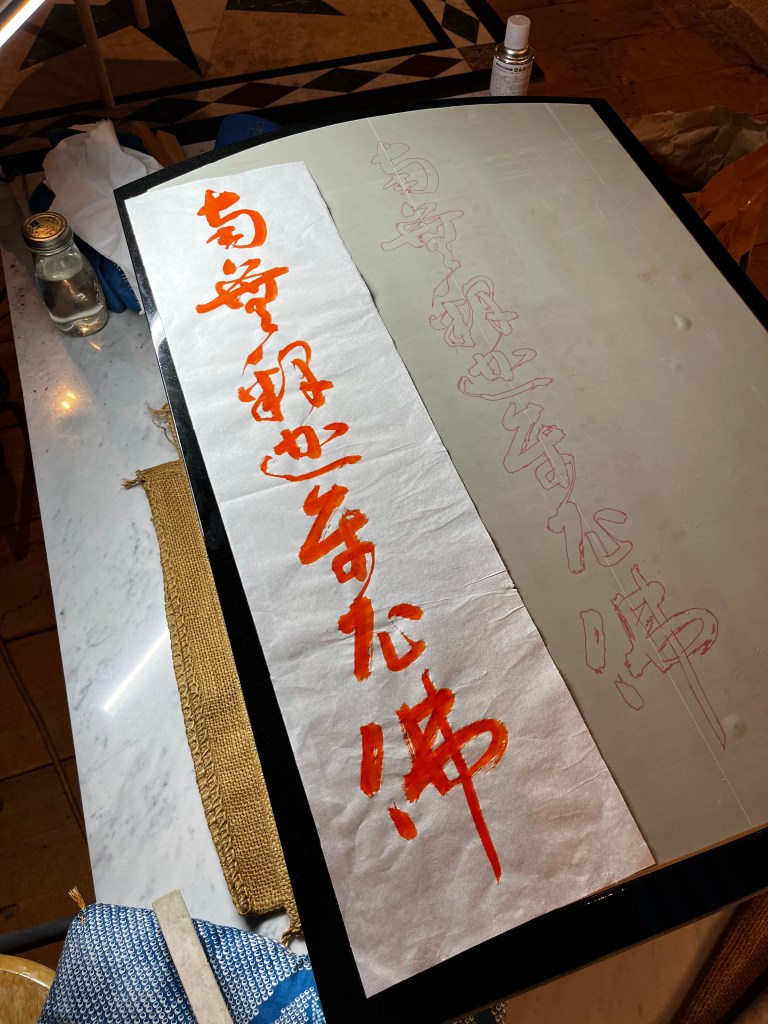 南無釋迦牟尼佛
南無釋迦牟尼佛